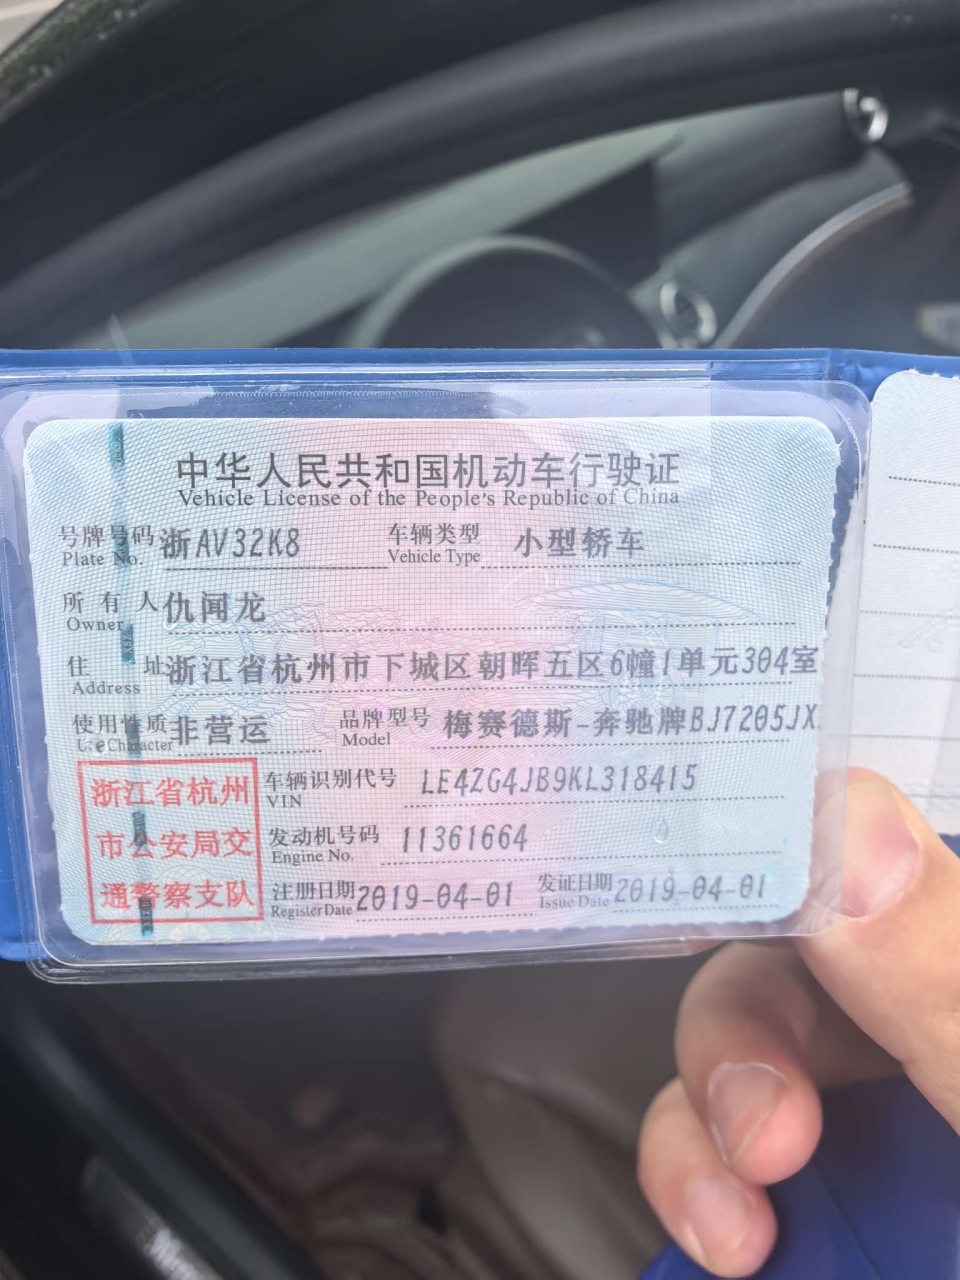 中华人民共和国机动车行驶证
Vehicle License of the People's Republic of China
号牌号码 浙AV32K8 车辆类型 小型轿车
Plate No. Vehicle Type
所有人 仇闻龙
Owner
住址 浙江省杭州市下城区朝晖五区6幢1单元304室
Address
使用性质 非营运 品牌型号 梅赛德斯-奔驰牌BJ7205JX
Use Character Model
浙江省杭州 车辆识别代号 LE4ZG4JB9KL318415
VIN
市公安局交 发动机号码 11361664
Engine No.
通警察支队 注册日期 2019-04-01 发证日期 2019-04-01
Register Date Issue Date